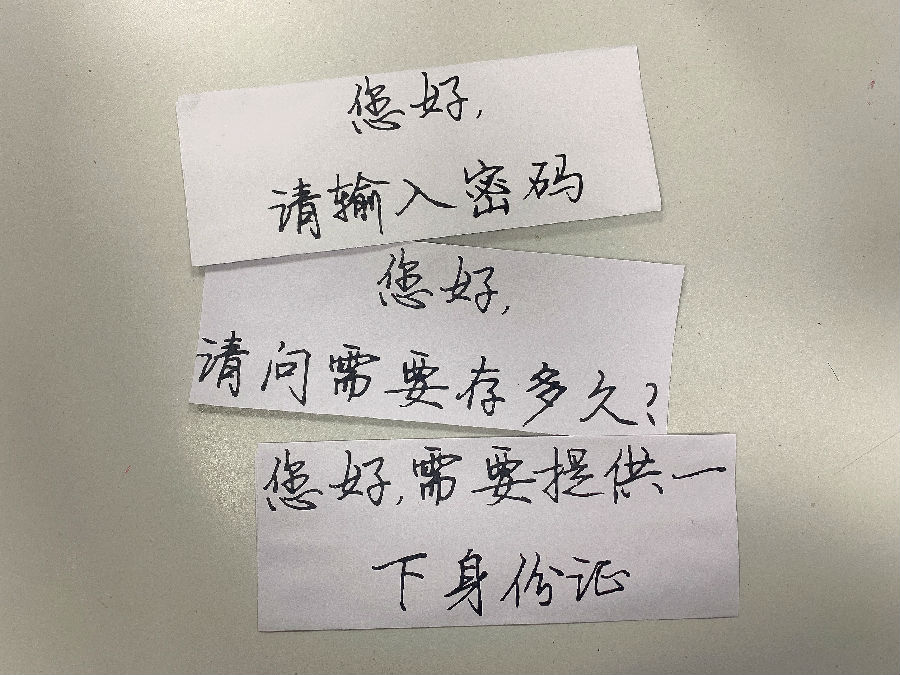 您好,
请输入密码
您好,
请问需要存多久?
您好,需要提供一
下身份证